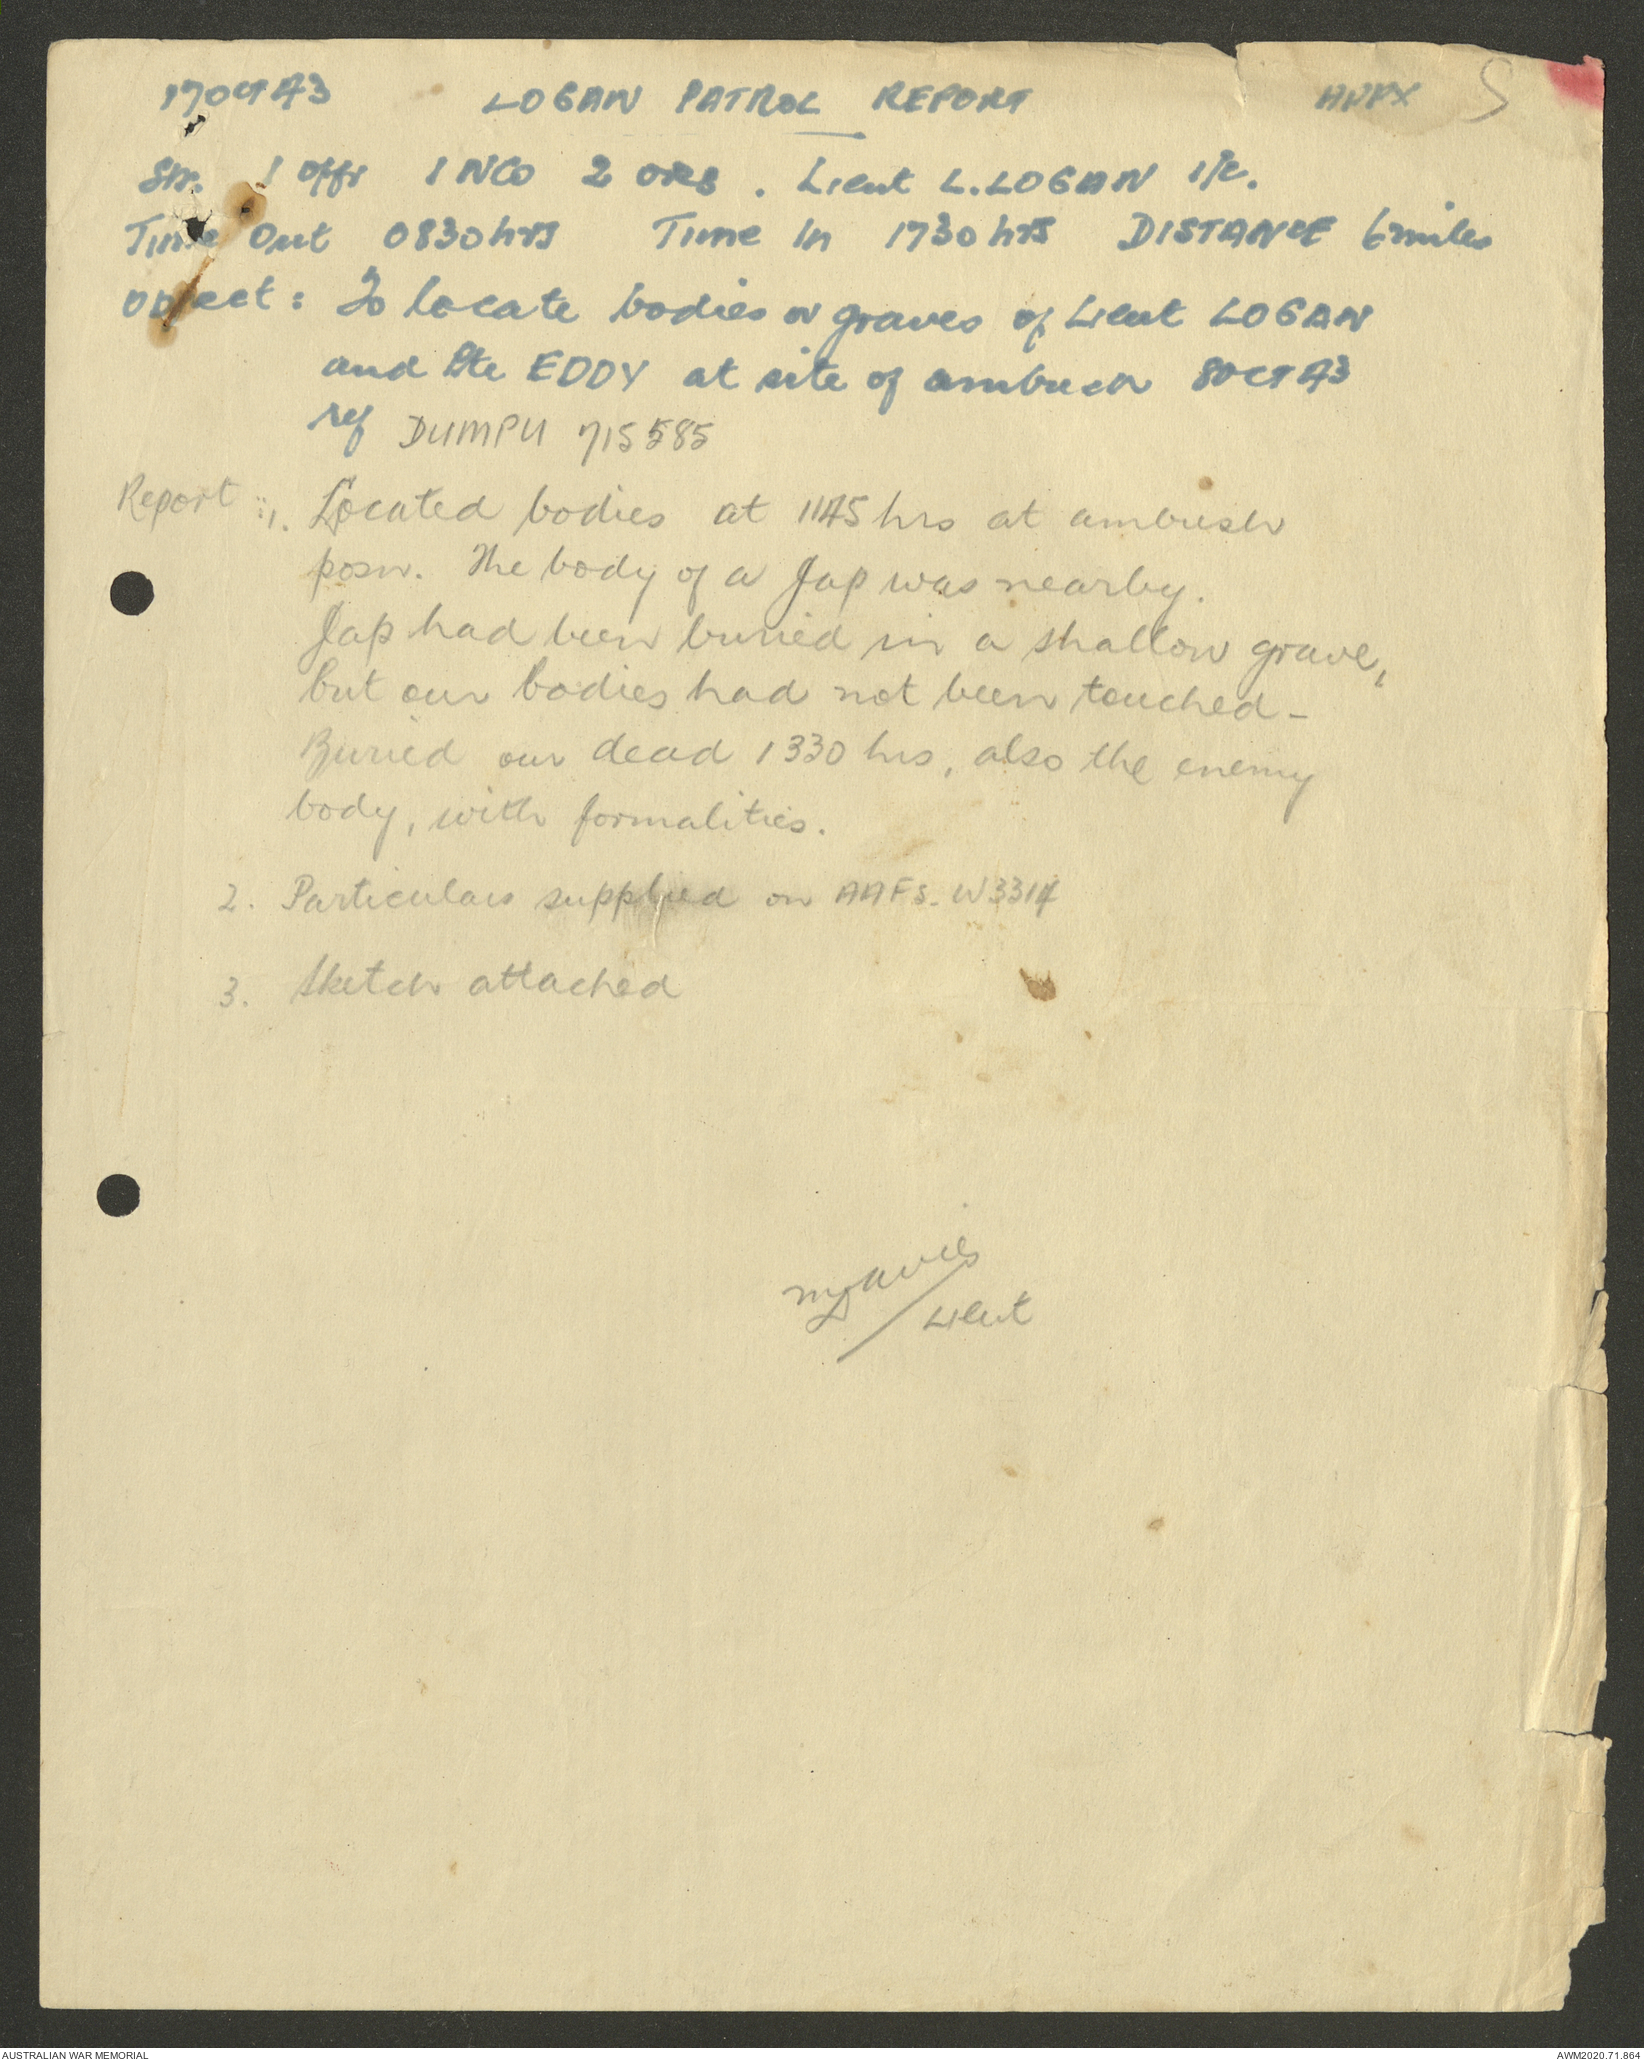 17 OCT 43 LOGAN PATROL REPORT APPX S
Str. 1 Offr 1 NCO 2 ORs. Lieut L. LOGAN i/c.
Time Out 0830 hrs Time In 1730 hrs DISTANCE 6 miles
Object: To locate bodies or graves of Lieut LOGAN
and Pte EDDY at site of ambush 8 OCT 43
ref DUMPU 715585
Report :- 1. Located bodies at 1145 hrs at ambush
posn. The body of a Jap was nearby.
Jap had been buried in a shallow grave,
but our bodies had not been touched -
Buried our dead 1330 hrs, also the enemy
body, with formalities.
2. Particulars supplied on AAFs. W3314
3. Sketch attached
Davies
Lieut
AUSTRALIAN WAR MEMORIAL AWM2020.71.864